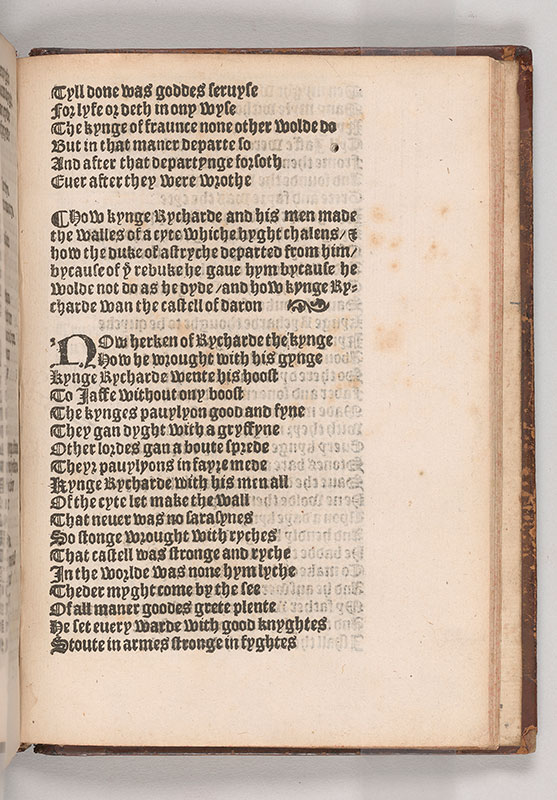 Tyll done was goddes seruyse
For lyfe or deth in ony wyse
The kynge of fraunce none other wolde do
But in that maner departe so
And after that departynge forsoth
Euer after they were wrothe
¶How kynge Rycharde and his men made
the walles of a cyte whiche hyght chalens/⁊
how the duke of astryche departed from him/
bycause of yͤ rebuke he gaue hym bycause he
wolde not do as he dyde/and how kynge Ry-
charde wan the castell of daron
NOw herken of Rycharde the kynge
How he wrought with his gynge
Kynge Rycharde wente his hoost
To Jaffe without ony boost
The kynges pauylyon good and fyne
They gan dyght with a gryffyne
Other lordes gan a boute sprede
Theyr pauylyons in fayre mede
Kynge Rycharde with his men all
Of the cyte let make the wall
That neuer was no sarasynes
So stonge wrought with ryches
That castell was stronge and ryche
In the worlde was none hym lyche
Theder myght come by the see
Of all maner goodes grete plente
He set euery warde with good knyghtes
Stoute in armes stronge in fyghtes